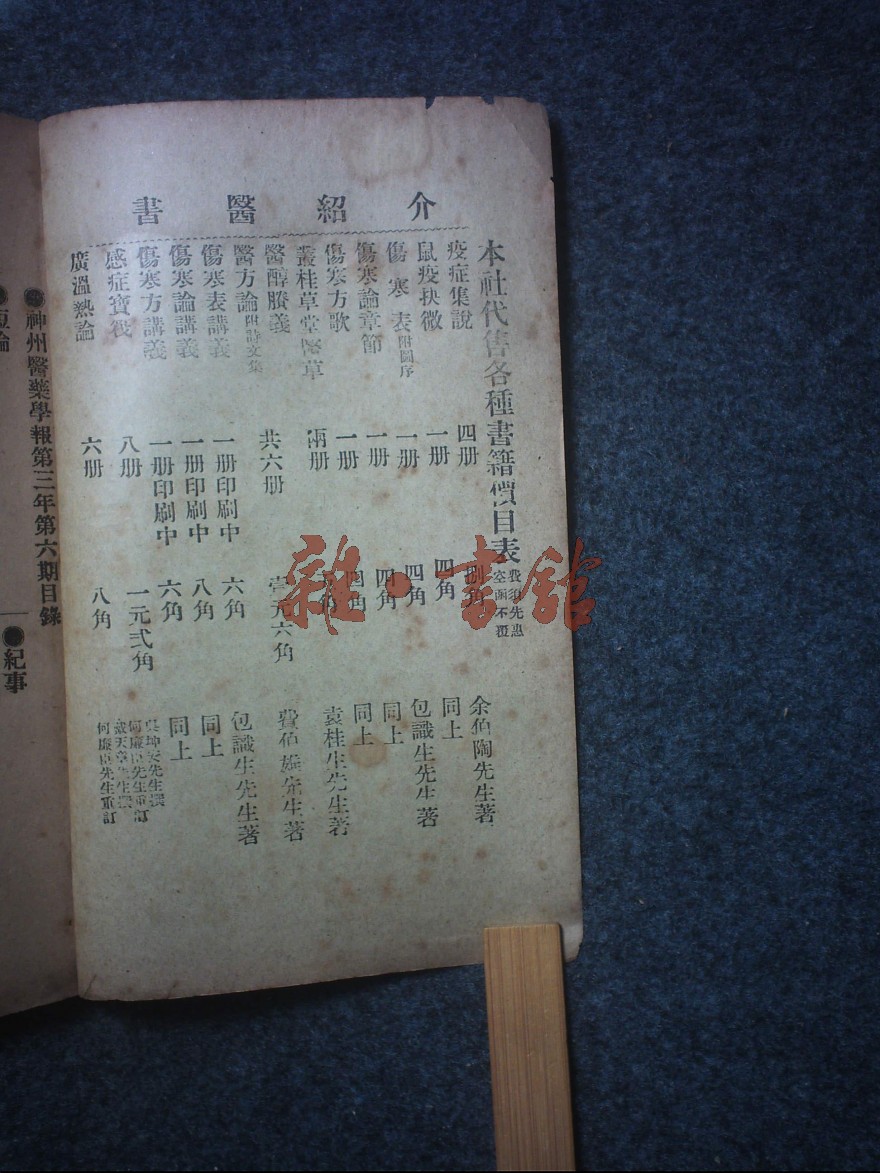 介紹醫書
本社代售各種書籍價目表 空函不覆
疫症集說 四册 捌角 余伯陶先生著
鼠疫抉微 一册 四角 同上
傷寒表附圖序 一册 四角 包識生先生著
傷寒論章節 一册 四角 同上
傷寒方歌 一册 四角 同上
叢桂草堂醫草 兩册 袁桂生先生著
醫醇賸義
醫方論附詩文集 共六册 壹元六角 費伯雄先生著
傷寒表講義 一册印刷中 六角 包識生先生著
傷寒論講義 一册印刷中 八角 同上
傷寒方講義 一册印刷中 六角 同上
感症寶筏 八册 一元弍角 吳坤安先生撰 何廉臣先生重訂
廣溫熱論 六册 八角 戴天章先生撰 何廉臣先生重訂
神州醫藥學報第三年第六期目錄
●紀事
雜·書舘